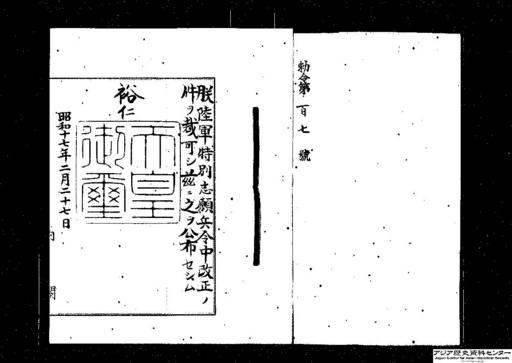 勅令第百七號
朕陸軍特別志願兵令中改正ノ
件ヲ裁可シ茲ニ之ヲ公布セシム
裕仁
天皇御璽
昭和十七年二月二十七日
内閣
アジア歴史資料センター
Japan Center for Asian Historical Records